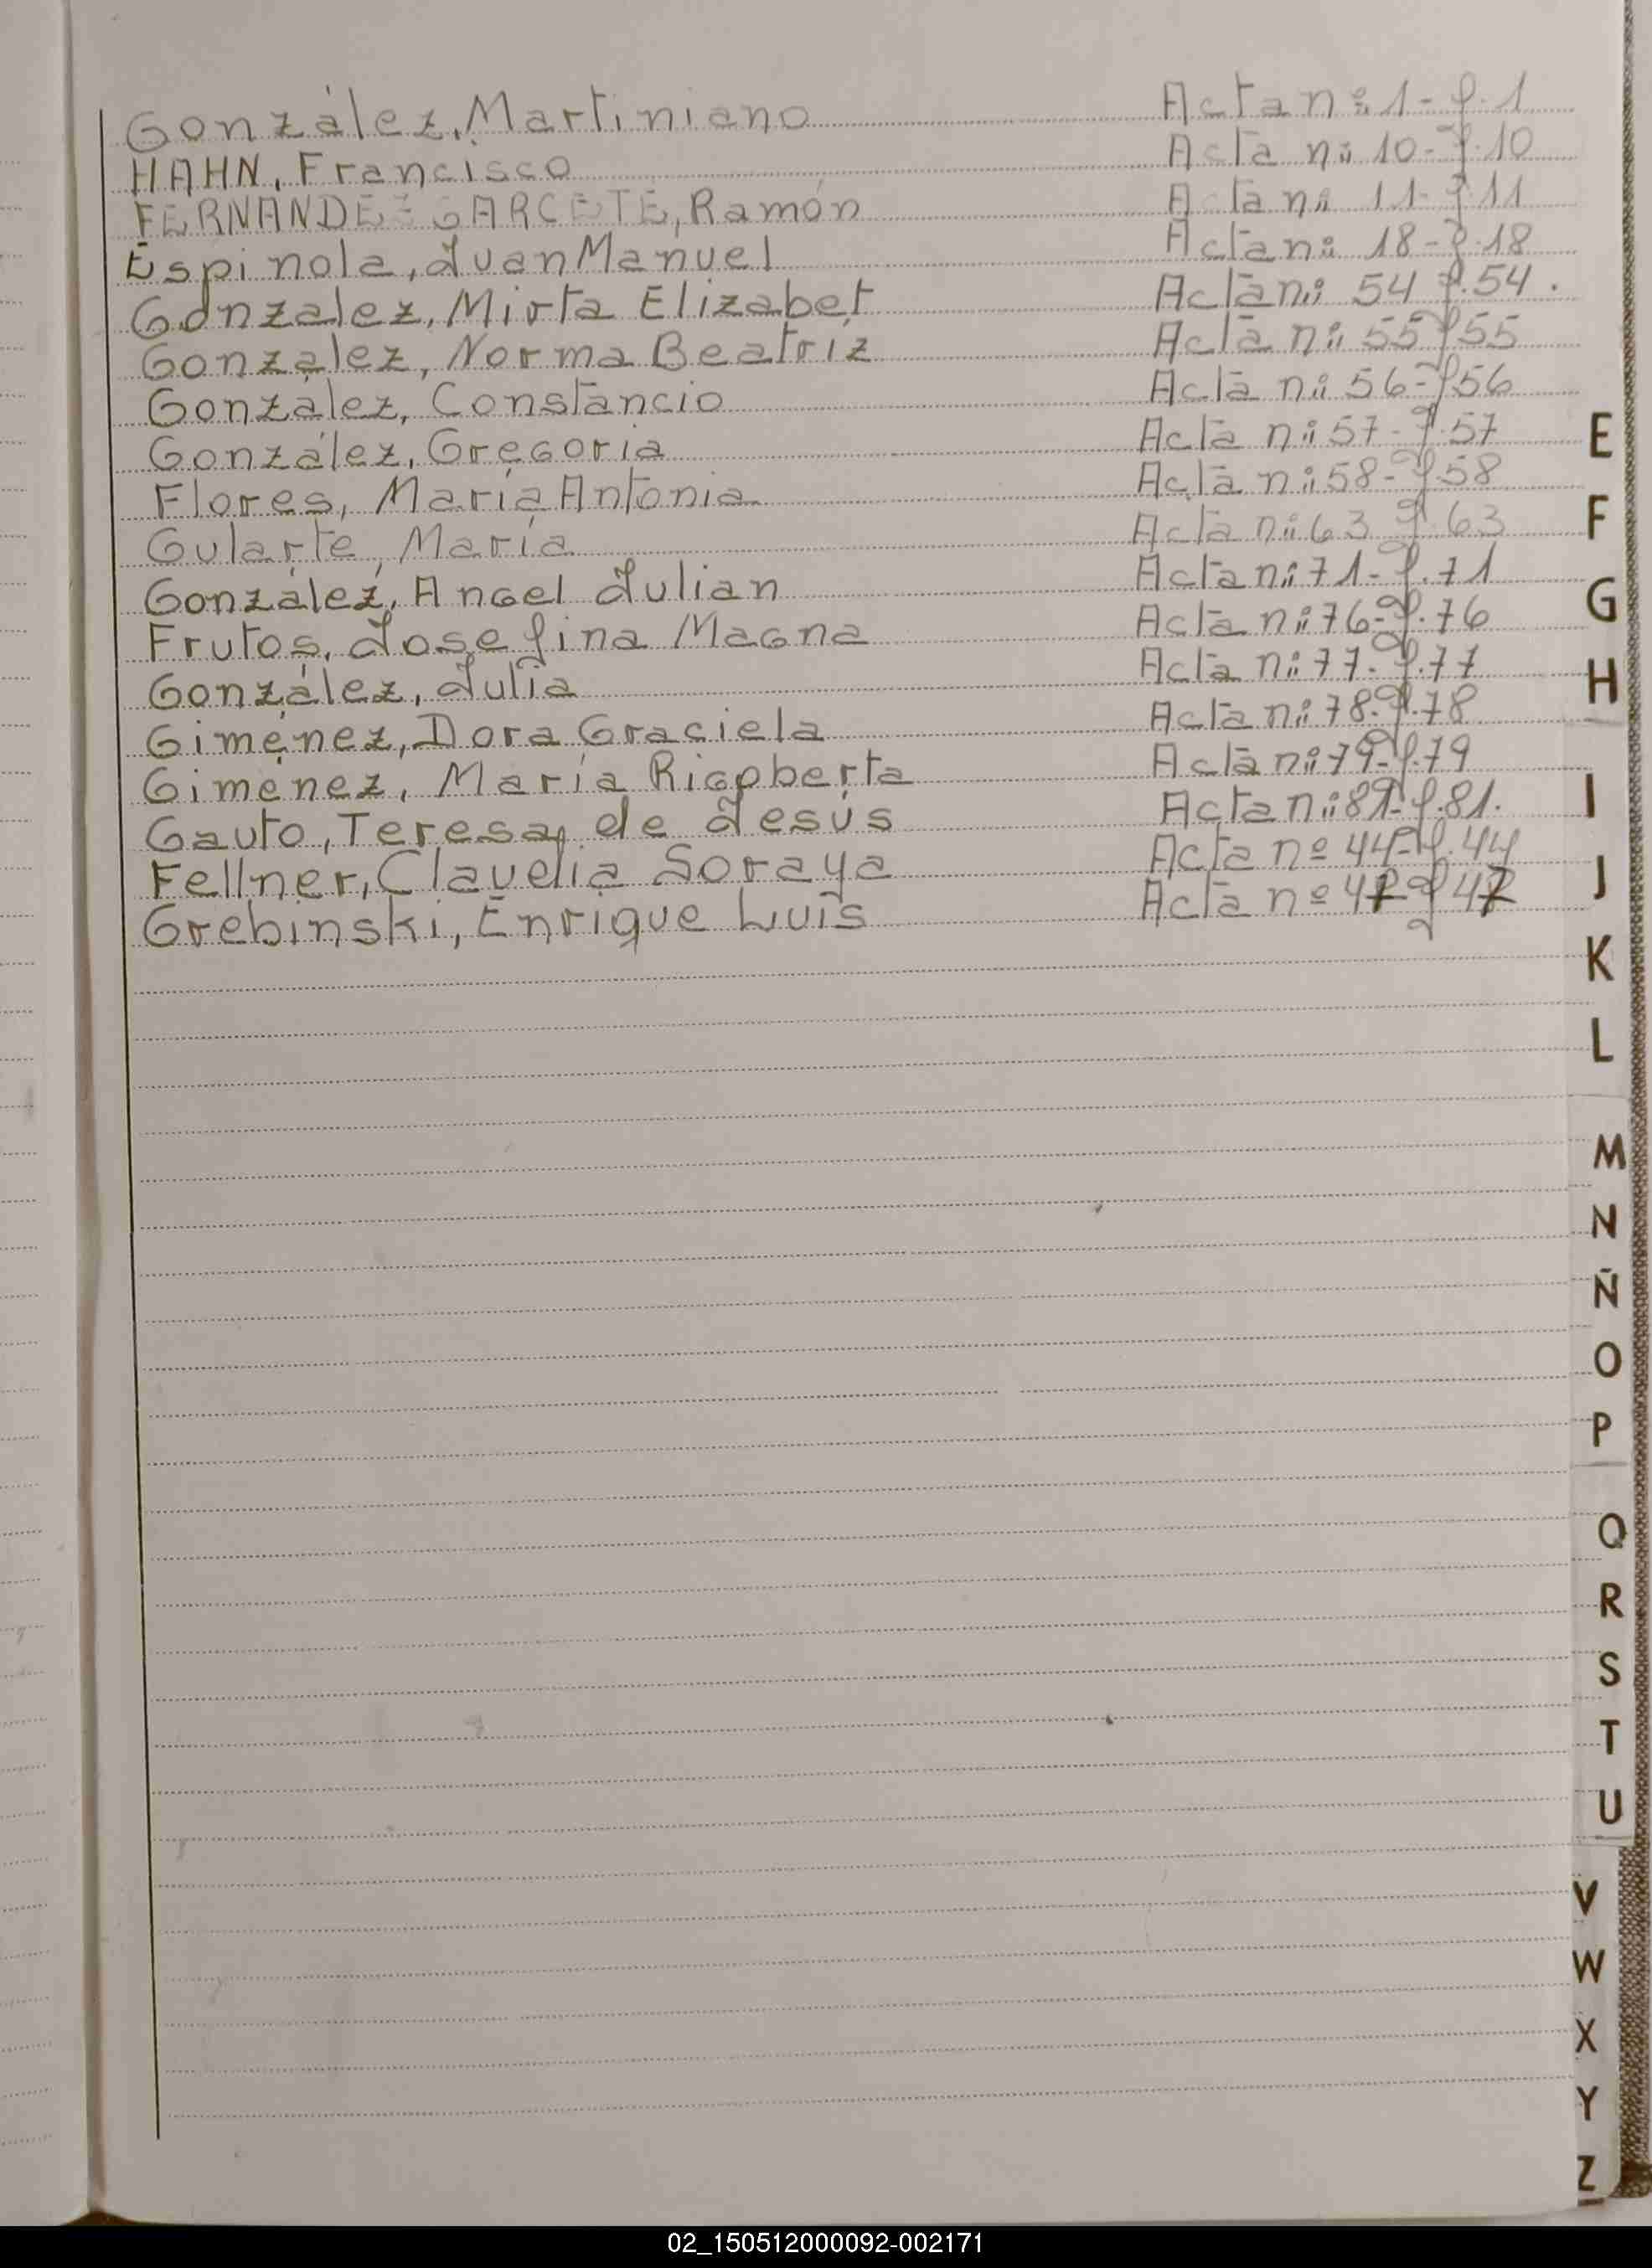 González, Martiniano Acta nº 1- f. 1
HAHN, Francisco Acta nº 10- f. 10
FERNANDEZ GARCETE, Ramón Acta nº 11- f. 11
Espinola, Juan Manuel Acta nº 18- f. 18
Gonzalez, Mirta Elizabet Acta nº 54 f. 54.
Gonzalez, Norma Beatriz Acta nº 55 f 55
González, Constancio Acta nº 56- f 56
González, Gregoria Acta nº 57- f. 57
Flores, María Antonia Acta nº 58- f 58
Gularte, María Acta nº 63 f. 63
González, Angel Julian Acta nº 71- f. 71
Frutos, Josefina Magna Acta nº 76- f. 76
González, Julia Acta nº 77- f. 77
Gimenez, Dora Graciela Acta nº 78- f. 78
Gimenez, María Rigoberta Acta nº 79- f. 79
Gauto, Teresa de Jesús Acta nº 81- f. 81.
Fellner, Clavelia Soraya Acta nº 44- f. 44
Grebinski, Enrique Luis Acta nº 47 f 47
E
F
G
H
I
J
K
L
M
N
Ñ
O
P
Q
R
S
T
U
V
W
X
Y
Z
02_150512000092-002171